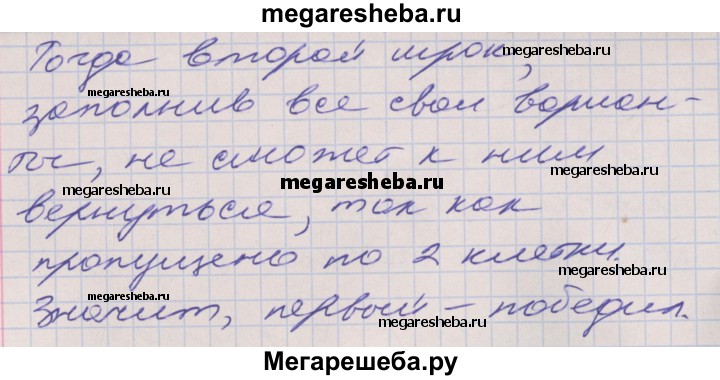 megaresheba.ru
Тогда второй игрок,
megaresheba.ru
megaresheba.ru
заполнив все свои вариан-
ты, не сможет к ним
megaresheba.ru
megaresheba.ru
megaresheba.ru
вернуться, так как
пропущено по 2 клетки.
megaresheba.ru
megaresheba.ru
Значит, первый – победил.
megaresheba.ru
Мегарешеба.ру